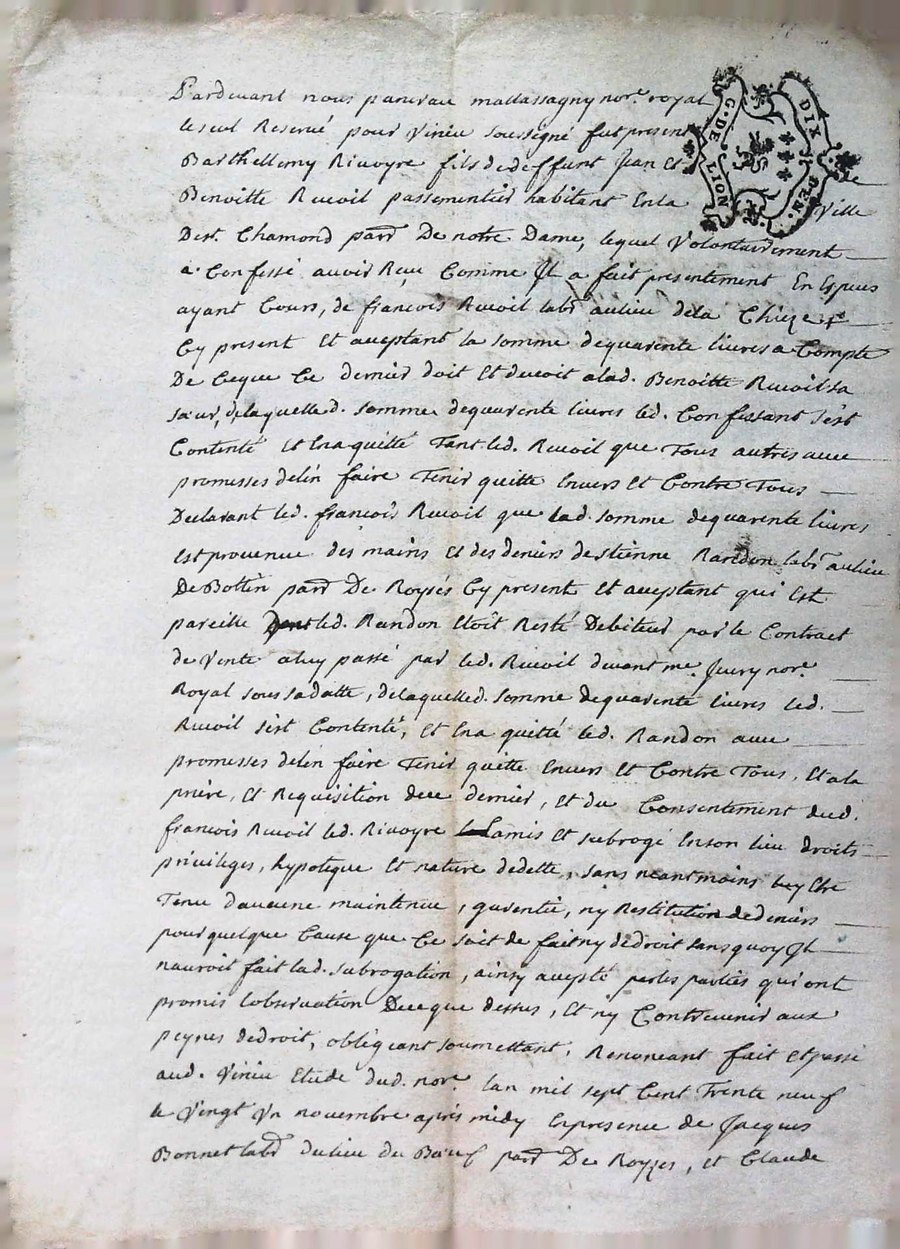 Pardevant nous pancrau mattassagny nore. royal
le seul Reservé pour Virieu soussigné fut present
G. DE LION
DIX DEN.
Barthellemy Rivoyre fils de deffunt Jean Et de
Benoitte Revoil passementier habitant En la Ville
De st. Chamond parr De notre Dame, lequel Volontairement
a Confessé auoir Reçu Comme Il a fait presentement En Especes
ayant Cours, de francois Revoil labr au lieu de la Chieze
Cy present Et aceptant la somme de quarente livres a Compte
De Ceque Ce dernier doit Et devoit a lad. Benoitte Revoil sa
sœur, de laquelle d. somme de quarente livres led. Confessant s'est
Contenté Et En a quitté Tant led. Revoil que Tous autres avec
promesses de l'en faire Tenir quitte Envers Et Contre Tous
Declarant led. francois Revoil que lad. somme de quarente livres
Est provenue des mains Et des deniers destienne Randon labr au lieu
De Bottin parr De Roysés Cy present Et aceptant qui Est
pareille dont led. Randon Etoit Resté Debiteur par le Contract
de Vente a luy passé par led. Revoil devant me. Jurry nore.
Royal sous sa datte, de laquelle d. somme de quarente livres led.
Revoil s'est Contenté, Et En a quitté led. Randon avec
promesses de l'en faire Tenir quitte Envers Et Contre Tous, Et a la
priere, Et Requisition de ce dernier, Et du Consentement dud.
francois Revoil led. Rivoyre la mis Et subrogé En son lieu droits
privileges, hypoteque Et nature de dette, sans neantmoins luy Etre
Tenu d'aucune maintenue, garentie, ny Restitution de deniers
pour quelque Cause que Ce soit de fait ny de droit sans quoy Il
n'auroit fait lad. subrogation, ainsy acepté par les parties qui ont
promis l'observation De ce que dessus, Et ny Contrevenir aux
peynes de droit, obligeant soumettant, Renoncant fait Et passé
aud. Virieu Etude dud. nore. l'an mil sept Cent Trente neuf
le Vingt Un novembre après midy En presence de Jacques
Bonnet labr du lieu du Bœuf parr De Royzes, et Claude